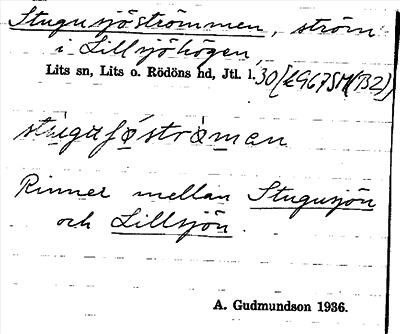 Stugusjöströmmen, ström
i Lillsjöhögen,
Lits sn, Lits o. Rödöns hd, Jtl. l. 30
Rinner mellan Stugusjön
och Lillsjön.
A. Gudmundson 1936.